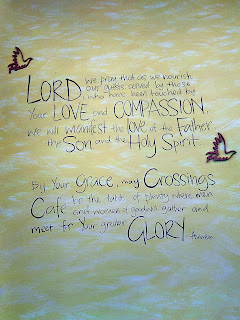 LORD we pray that as we nourish
our guests served by those
who have been touched by
Your LOVE and COMPASSION,
we will manifest the love of the Father
the Son and the Holy Spirit.
By Your Grace, may Crossings
Cafe be the table of plenty where men
and women of goodwill gather and
meet for Your greater GLORY
Amen